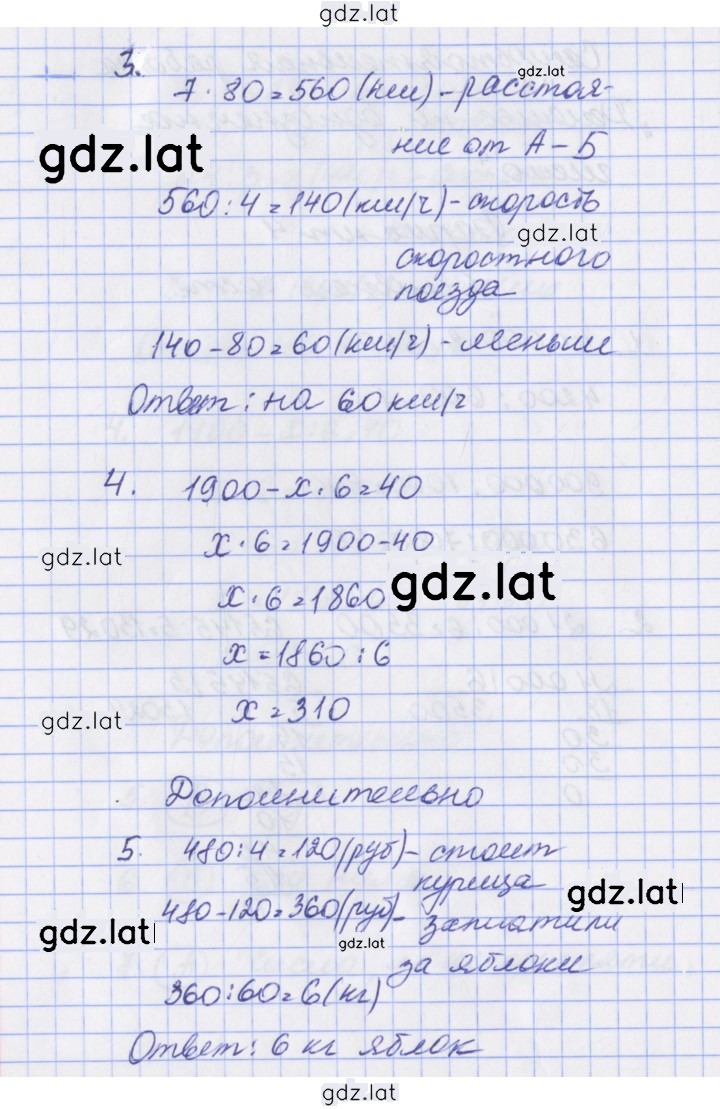 gdz.lat
3.
gdz.lat
7 · 80 = 560 (км) - расстоя-
gdz.lat
ние от А - Б
560 : 4 = 140 (км/ч) - скорость
gdz.lat
скоростного
поезда
140 - 80 = 60 (км/ч) - меньше
Ответ: на 60 км/ч
4. 1900 - x · 6 = 40
x · 6 = 1900 - 40
gdz.lat
x · 6 = 1860
gdz.lat
x = 1860 : 6
x = 310
gdz.lat
Дополнительно
5. 480 : 4 = 120 (руб) - стоит
курица
gdz.lat
480 - 120 = 360 (руб) - заплатили
gdz.lat
gdz.lat
за яблоки
360 : 60 = 6 (кг)
Ответ: 6 кг яблок
gdz.lat